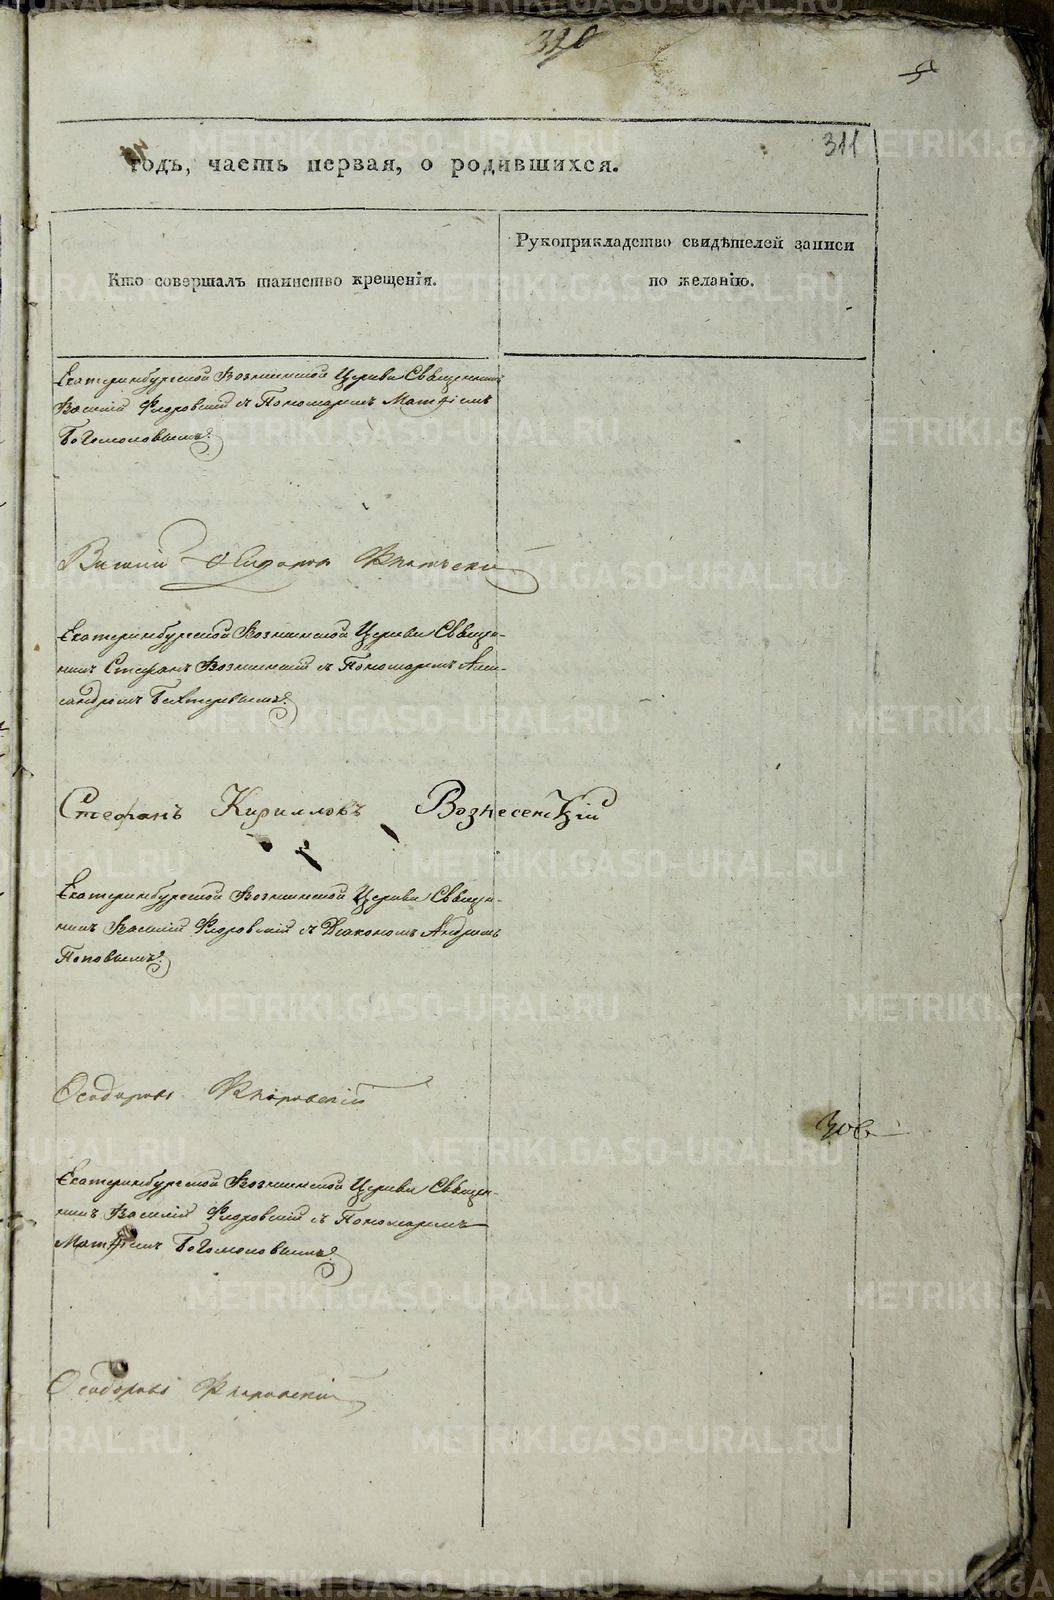 320
5
311
годъ, часть первая, о родившихся.
Кто совершалъ таинство крещенія.
Рукоприкладство свидѣтелей записи
по желанію.
Екатеринбургской Вознесенской Церкви Священникъ
Василій Флоровскій съ Пономаремъ Матѳіемъ
Богомоловымъ.
Василій Ѳеодоровъ Флоровскій
Екатеринбургской Вознесенской Церкви Священ-
никъ Стефанъ Вознесенскій съ Пономаремъ Алек-
сандромъ Бехтеревымъ.
Стефанъ Кирилловъ Вознесенскій
Екатеринбургской Вознесенской Церкви Священ-
никъ Василій Флоровскій съ Діакономъ Андреемъ
Поповымъ.
Ѳеодоровъ Флоровскій
Екатеринбургской Вознесенской Церкви Священ-
никъ Василій Флоровскій съ Пономаремъ
Матѳіемъ Богомоловымъ.
Ѳеодоровъ Флоровскій
METRIKI.GASO-URAL.RU